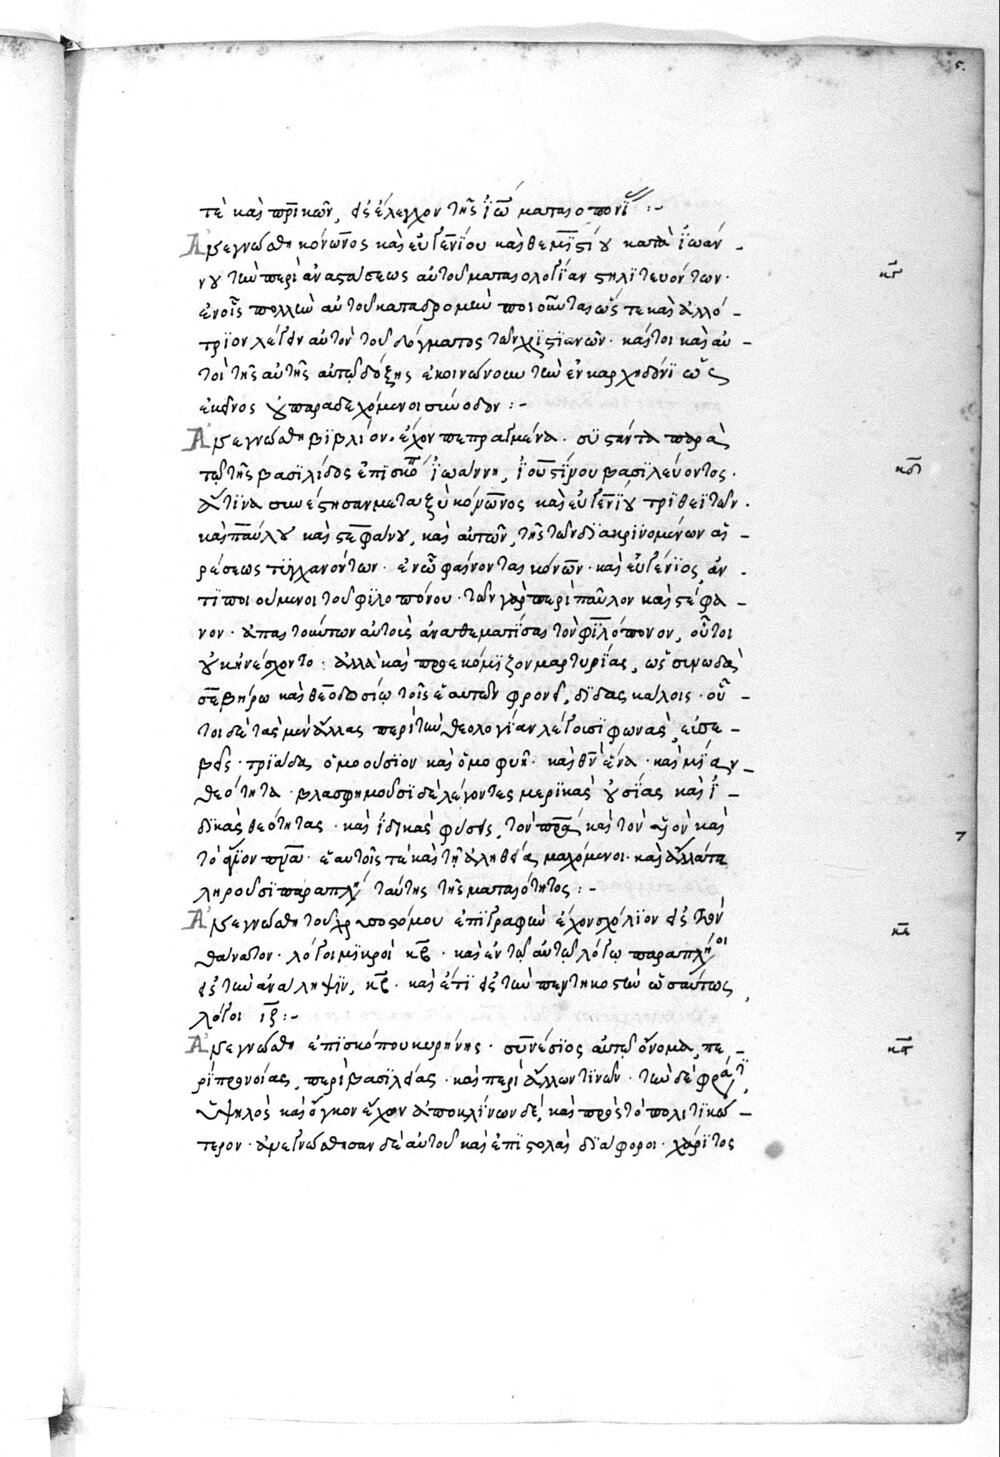 5.
τὲ καὶ πρικῶν, εἰς ἔλεγχον τῆς ἰω ματαιοπονί :-
Ἀνεγνώσθη κόνωνος καὶ εὐγενίου καὶ θεμιστίου κατὰ ἰωάν -
νου τὴν περὶ ἀναστάσεως αὐτοῦ ματαιολογίαν στηλιτευόντων· κγ
ἐν οἷς πολλὴν αὐτοῦ καταδρομὴν ποιοῦνται ὥς τε καὶ ἀλλό -
τριον λέγειν αὐτὸν τοῦ δόγματος τῶν χριστιανῶν· καίτοι καὶ αὐ -
τοὶ τῆς αὐτῆς αὐτῷ δόξης ἐκοινώνουν τὴν ἐν καρχηδόνι ὡς
ἐκεῖνος οὐ παραδεχόμενοι σύνοδον :-
Ἀνεγνώσθη βιβλίον· ἔχον πεπραγμένα· συστάντα παρὰ
τῷ τῆς βασιλίδος ἐπισκό ἰωάννη, ἰουστίνου βασιλεύοντος· κδ
ἅτινα συνέστησαν μεταξὺ κόνωνος καὶ εὐγενίου τριθεϊτῶν·
καὶ παύλου καὶ στεφάνου, καὶ αὐτῶν, τῆς τῶν διακρινομένων αἱ -
ρέσεως τυγχανόντων· ἐν ὧ φαίνονται κόνων· καὶ εὐγένιος ἀν -
τιποιούμενοι τοῦ φιλοπόνου· τῶν γὰρ περὶ παῦλον καὶ στέφα -
νον· ἀπαιτούντων αὐτοὺς ἀναθεματίσαι τὸν φιλόπονον, οὗτοι
οὐκ ἠνέσχοντο· ἀλλὰ καὶ προεκόμιζον μαρτυρίας, ὡς συνωδὰ
σεβήρω καὶ θεοδοσίῳ τοῖς ἑαυτῶν φρονεῖ, διδασκάλοις· οὗ -
τοι δὲ τὰς μὲν ἄλλας περὶ τὴν θεολογίαν λέγουσι φωνὰς, εὐσε -
βεῖς· τριάδα ὁμοούσιον καὶ ὁμοφυῆ· καὶ θν ἕνα· καὶ μίαν -
θεότητα· βλασφημοῦσι δὲ λέγοντες μερικὰς οὐσίας καὶ ἰ -
δικὰς θεότητας· καὶ ἰδικὰς φύσεις, τὸν πρα καὶ τὸν υἱὸν καὶ 7
τὸ ἅγιον πνα· ἑαυτοῖς τὲ καὶ τῆ ἀληθείᾳ μαχόμενοι· καὶ ἄλλα τε
ληροῦσι παραπλή ταύτης τῆς ματαιότητος :-
Ἀνεγνώσθη τοῦ χρυσοστόμου ἐπιγραφὴν ἔχον σχόλιον εἰς τὸν
θάνατον· λόγοι μικροὶ κβ· καὶ ἐν τῷ αὐτῷ λόγω παραπλήσιοι κε
εἰς τὴν ἀνάληψιν, κβ· καὶ ἔτι εἰς τὴν πεντηκοστὴν ὡσαύτως,
λόγοι ιζ :-
Ἀνεγνώσθη ἐπισκόπου κυρήνης· συνέσιος αὐτῷ ὄνομα, πε - κς
ρὶ προνοίας, περὶ βασιλείας· καὶ περὶ ἄλλων τινῶν· τὴν δὲ φράσι,
ὑψηλὸς καὶ ὄγκον ἔχων ἀποκλίνων δὲ, καὶ πρὸς τὸ ποιητικώ -
τερον· ἀνεγνώσθησαν δὲ αὐτοῦ καὶ ἐπιστολαὶ διάφοροι· χάριτος